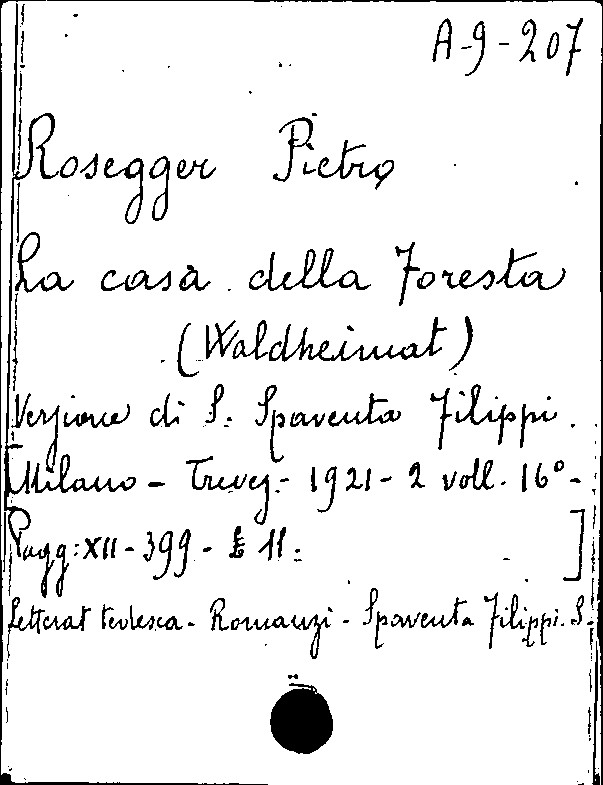 A-9-207
Rosegger Pietro
La casa della Foresta
(Waldheimat)
Versione di S. Spaventa Filippi.
[Milano - Treves. - 1921 - 2 voll. 16° -
Pagg: XII - 399 - £ 11. ]
Letterat tedesca - Romanzi - Spaventa Filippi. S.